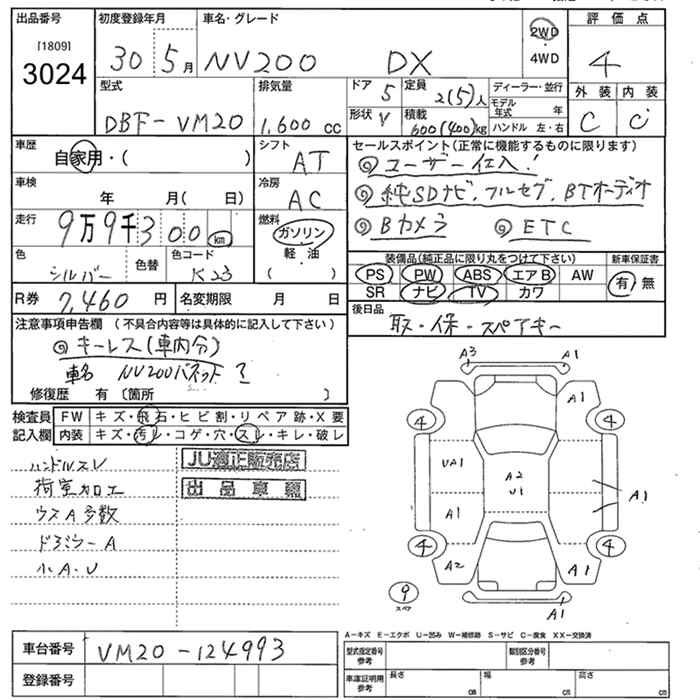 出品番号 初度登録年月 車名・グレード 評価点
[1809]
3024 30 5月 NV200 DX 2WD 4WD 4
型式 排気量 ドア 5 定員 2(5)人 ディーラー・並行 外装 内装
DBF-VM20 1,600 cc 形状 V 積載 600(400)kg モデル年式 年 C C
ハンドル 左・右
車歴 自家用・( ) シフト AT セールスポイント(正常に機能するものに限ります)
◎ユーザー仕入!
車検 年 月( 日) 冷房 AC ◎純SDナビ.フルセグ.BTオーディオ
走行 9万9千300km 燃料 ガソリン 軽油 ( ) ◎Bカメラ ◎ETC
色 シルバー 色替 色コード K23
装備品(純正品に限り丸をつけて下さい) 新車保証書
PS PW ABS エアB AW 有・無
SR ナビ TV カワ
R券 7,460円 名変期限 月 日
後日品 取・保・スペアキー
注意事項申告欄 (不具合内容等は具体的に記入して下さい)
◎キーレス(車内分)
車名 NV200バネット
修復歴 有〔箇所 〕
検査員記入欄 FW キズ・飛石・ヒビ割・リペア跡・X要
内装 キズ・汚れ・コゲ・穴・スレ・キレ・破レ
ハンドルスレ
荷室加工
ウスA多数
ドアミラーA
小A.U
JU適正販売店
出品車輌
A3 A1
A1
4 4
UA1 A2 U1 A1
A1
4 4
A2 A1
9 スペア
A1
A-キズ E-エクボ U-凹み W-補修跡 S-サビ C-腐食 XX-交換済
車台番号 VM20-124993
登録番号
型式指定番号 参考 類別区分番号 参考
車庫証明用 参考 長さ cm 幅 cm 高さ cm